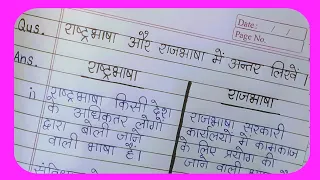 Date:
Page No.
Qus. राष्ट्रभाषा और राजभाषा में अन्तर लिखें।
Ans. राष्ट्रभाषा
राजभाषा
i) राष्ट्रभाषा किसी देश
के अधिकतर लोगों
द्वारा बोली जाने
वाली भाषा है।
राजभाषा सरकारी
कार्यालयों में कामकाज
के लिए प्रयोग की
जाने वाली भाषा है